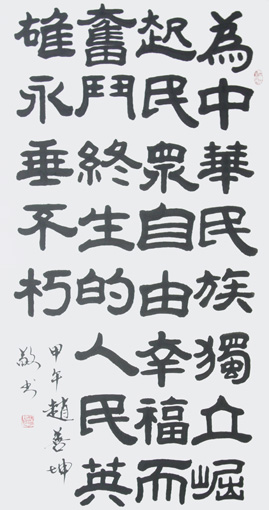 為中華民族獨立崛
起民眾自由幸福而
奮鬥終生的人民英
雄永垂不朽
甲午趙善坤
敬書